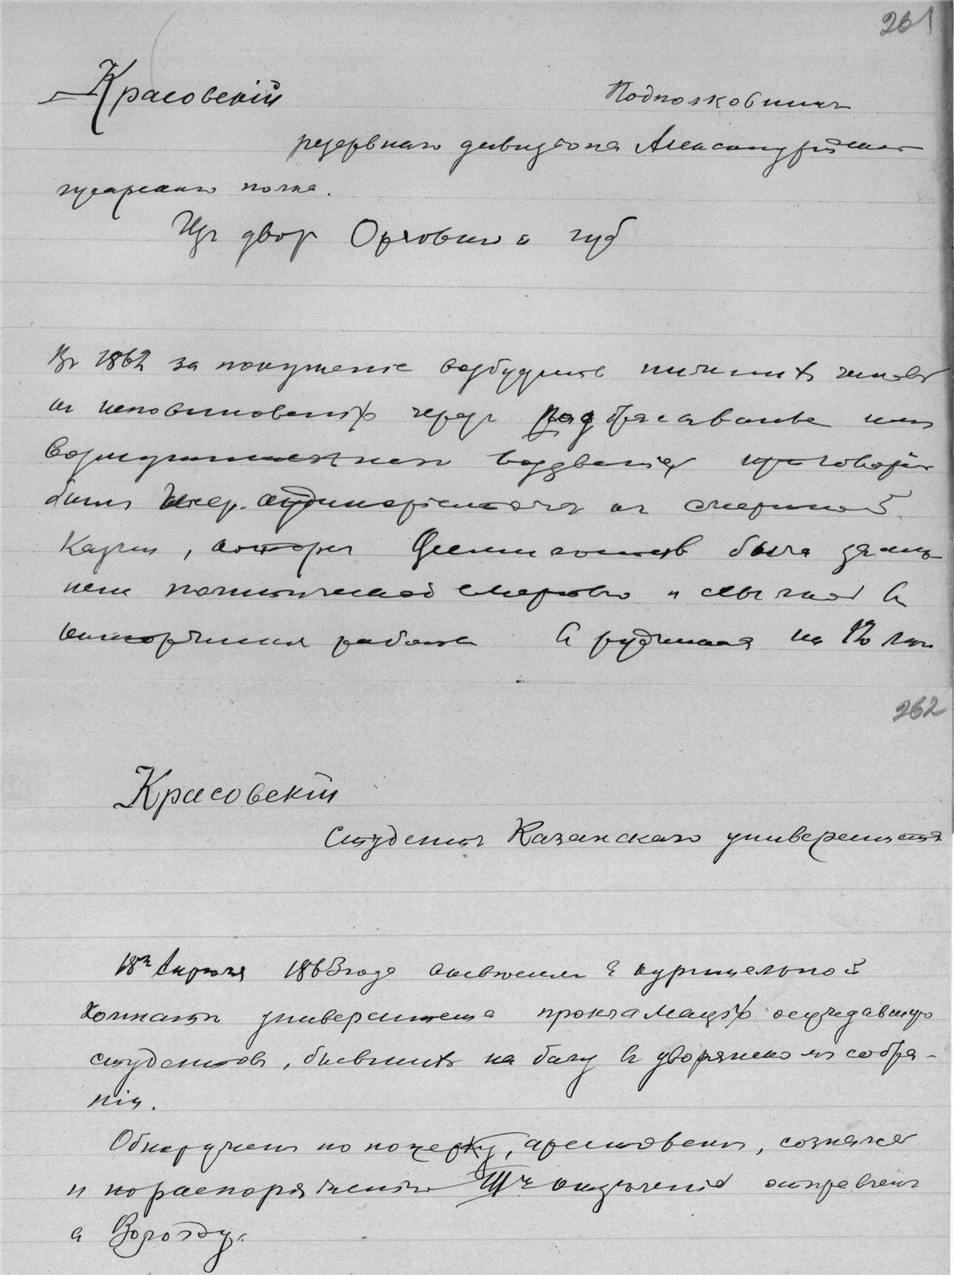 261
Красовскій Подполковникъ
резервнаго дивизіона Александрійскаго
гусарскаго полка.
Изъ двор Орловской губ
Въ 1862 за покушеніе возбудить нижнихъ чиновъ
къ неповиновенію чрезъ разбрасыванье имъ
возмутительныхъ воззваній приговоренъ
былъ Генер. аудиторіатомъ къ смертной
казни, которая была замѣ-
нена политической смертью и ссылкой въ
каторжныя работы въ рудникахъ на 12 лѣтъ
262
Красовскій
Студентъ Казанскаго университета
18го Апрѣля 1863 года въ курительной
комнатѣ университета прокламацію осуждавшую
студентовъ, бывшихъ на балу въ дворянскомъ собра-
ніи.
Обнаруженъ по почерку, арестованъ, сознался
и по распоряженію III отдѣленія отправленъ
въ Вологду.